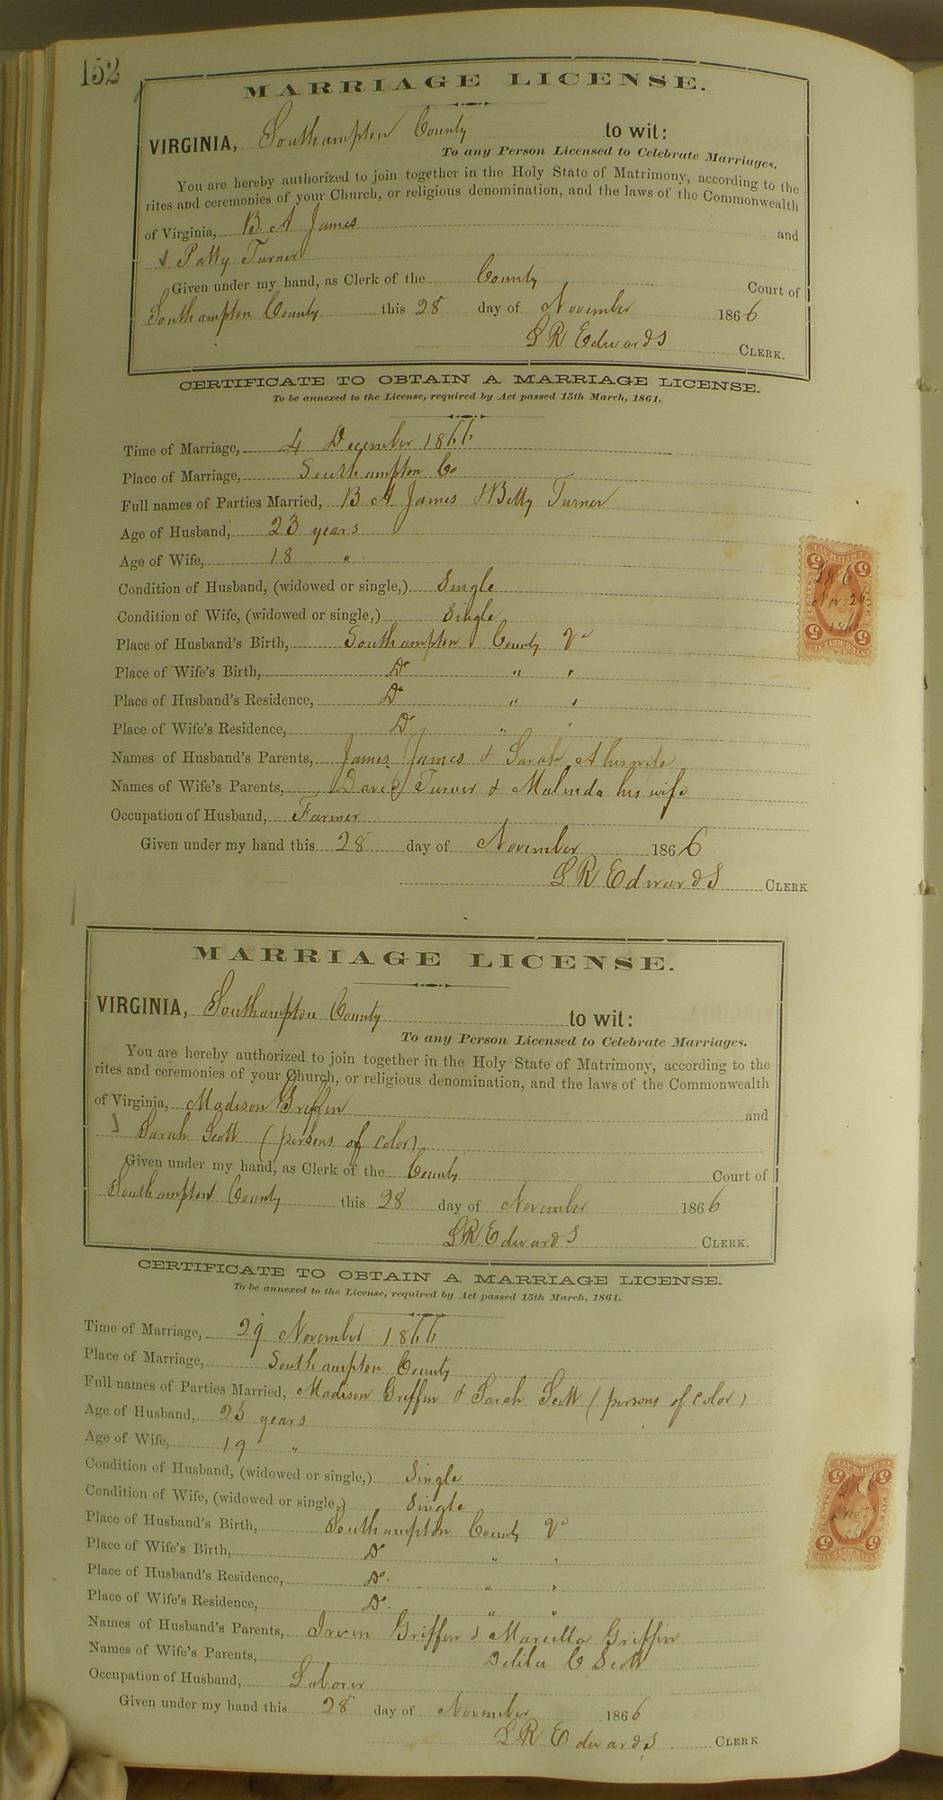 152
MARRIAGE LICENSE.
VIRGINIA, Southampton County to wit:
To any Person Licensed to Celebrate Marriages.
You are hereby authorized to join together in the Holy State of Matrimony, according to the
rites and ceremonies of your Church, or religious denomination, and the laws of the Commonwealth
of Virginia, B. A James and
& Patty Turner
Given under my hand, as Clerk of the County Court of
Southampton County this 28 day of November 1866
L R Edwards CLERK.
CERTIFICATE TO OBTAIN A MARRIAGE LICENSE.
To be annexed to the License, required by Act passed 15th March, 1861.
Time of Marriage, 4 December 1866
Place of Marriage, Southampton Co
Full names of Parties Married, B A James & Betty Turner
Age of Husband, 23 years
Age of Wife, 18 "
Condition of Husband, (widowed or single,) Single
Condition of Wife, (widowed or single,) Single
Place of Husband's Birth, Southampton County Va
Place of Wife's Birth, Do " "
Place of Husband's Residence, Do " "
Place of Wife's Residence, Do " "
Names of Husband's Parents, James James & Sarah A his wife
Names of Wife's Parents, David Turner & Malinda his wife
Occupation of Husband, Farmer
Given under my hand this 28 day of November 1866
L R Edwards CLERK
MARRIAGE LICENSE.
VIRGINIA, Southampton County to wit:
To any Person Licensed to Celebrate Marriages.
You are hereby authorized to join together in the Holy State of Matrimony, according to the
rites and ceremonies of your Church, or religious denomination, and the laws of the Commonwealth
of Virginia, Madison Griffin and
Sarah Scott (persons of color)
Given under my hand, as Clerk of the County Court of
Southampton County this 28 day of November 1866
L R Edwards CLERK.
CERTIFICATE TO OBTAIN A MARRIAGE LICENSE.
To be annexed to the License, required by Act passed 15th March, 1861.
Time of Marriage, 29 November 1866
Place of Marriage, Southampton County
Full names of Parties Married, Madison Griffin & Sarah Scott (persons of color)
Age of Husband, 23 years
Age of Wife, 19 "
Condition of Husband, (widowed or single,) Single
Condition of Wife, (widowed or single,) Single
Place of Husband's Birth, Southampton County Va
Place of Wife's Birth, Do " "
Place of Husband's Residence, Do " "
Place of Wife's Residence, Do " "
Names of Husband's Parents, Griffin & Griffin
Names of Wife's Parents, Scott
Occupation of Husband, Laborer
Given under my hand this 28 day of November 1866
L R Edwards CLERK